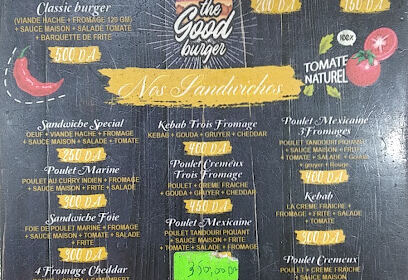 Classic burger
(VIANDE HACHE + FROMAGE 120 GM)
+ SAUCE MAISON + SALADE TOMATE
+ BARQUETTE DE FRITE
500 DA
the
Good
burger
200 DA
150 DA
100%
TOMATE
NATUREL
Nos Sandwichos
Sandwiche Special
OEUF + VIANDE HACHE + FROMAGE
+ SAUCE MAISON + SALADE + TOMATE
250 DA
Poulet Marine
POULET AU CURRY INDIEN + FROMAGE
+ SAUCE MAISON + FRITE + SALADE
300 DA
Sandwiche Foie
FOIE DE POULET MARINE + FROMAGE
+ SAUCE MAISON + TOMATE + SALADE
+ FRITE
300 DA
4 Fromage Cheddar
Kebab Trois Fromage
KEBAB + GOUDA + GRUYER + CHEDDAR
400 DA
Poulet Cremeux
Trois Fromage
POULET + CREME FRAICHE
+ GOUDA + GRAYER + CHEDDAR
450 DA
Poulet Mexicaine
POULET TANDOURI PIQUANT
+ SAUCE MAISON + FRITE
+ TOMATE + SALADE + FROMAGE
350,00 DA
Poulet Mexicaine
3Fromages
POULET TANDOURI PIQUANT
+ SAUCE MAISON + FRITE
+ TOMATE + SALADE + GOUDA
+ gruyer + Rouge
400 DA
Kebab
LA CREME FRAICHE +
FROMAGE + FRITE + SALADE
+ TOMATE
300 DA
Poulet Cremeux
POULET + CREME FRAICHE
+ SAUCE MAISON